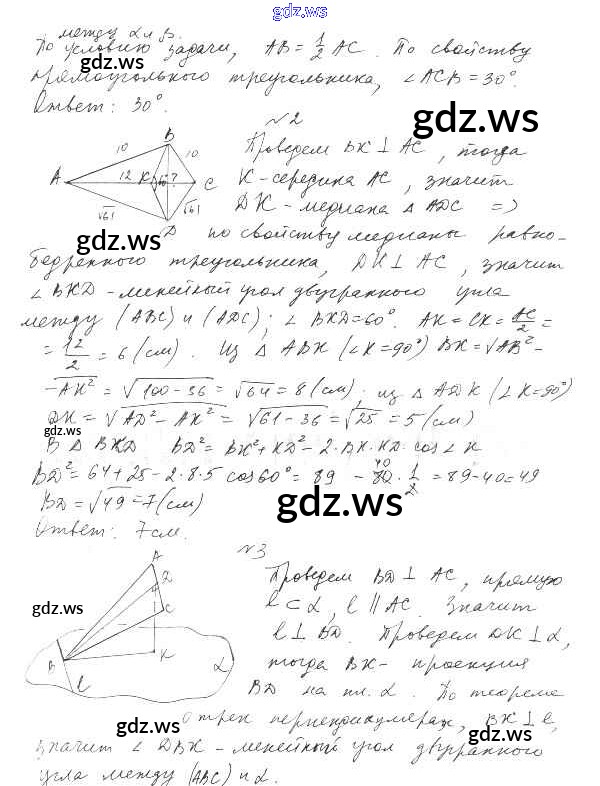 gdz.ws
между α и β.
По условию задачи, AB = 1/2 AC. По свойству
gdz.ws
прямоугольного треугольника, ∠ACB = 30°.
Ответ: 30°.
gdz.ws
№2
B
10 10
Проведем BK ⊥ AC, тогда
A 12 K 60° ? C
K - середина AC, значит
√61 √61
DK - медиана △ ADC =>
D
gdz.ws
по свойству медианы равно-
бедренного треугольника, DK ⊥ AC, значит
∠ BKD - линейный угол двугранного угла
между (ABC) и (ADC); ∠ BKD = 60°. AK = CK = AC/2 =
= 12/2 = 6 (см). Из △ ABK (∠K = 90°) BK = √AB² -
gdz.ws
- AK² = √100 - 36 = √64 = 8 (см); из △ ADK (∠K = 90°)
DK = √AD² - AK² = √61 - 36 = √25 = 5 (см)
gdz.ws
В △ BKD BD² = BK² + KD² - 2·BK·KD·cos∠K
BD² = 64 + 25 - 2·8·5 cos60° = 89 - 80 40 · 1/2 = 89 - 40 = 49
BD = √49 = 7 (см)
gdz.ws
Ответ: 7 см.
№3
A
D
Проведем BD ⊥ AC, прямую
C
l ⊂ α, l ∥ AC. Значит
gdz.ws
l ⊥ BD. Проведем DK ⊥ α,
B l K α
тогда BK - проекция
BD на пл. α. По теореме
gdz.ws
о трех перпендикулярах, BK ⊥ l,
gdz.ws
значит ∠ DBK - линейный угол двугранного
угла между (ABC) и α.
gdz.ws